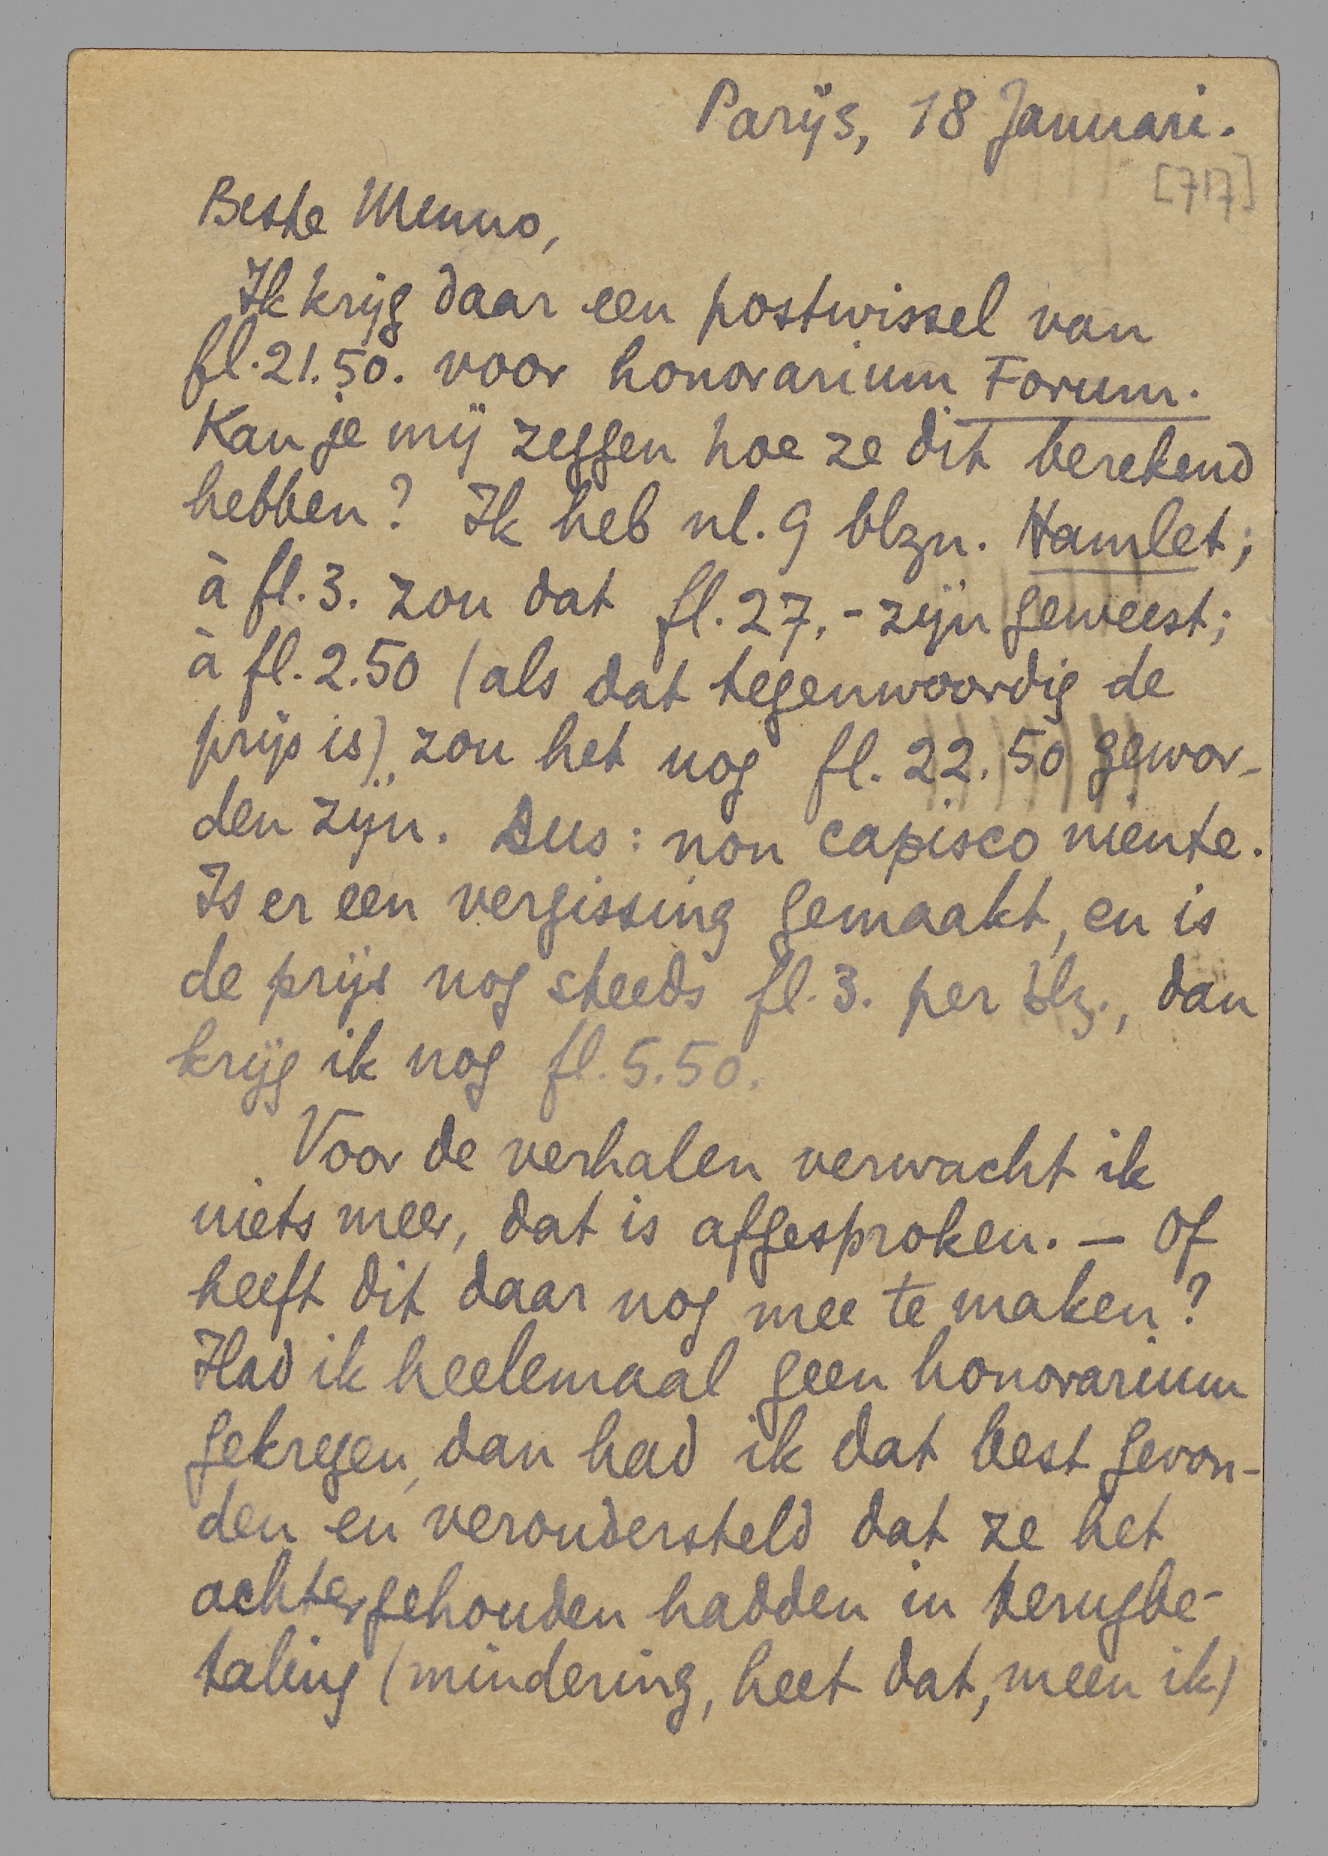 Parijs, 18 Januari.
[717]
Beste Menno,
Ik krijg daar een postwissel van
fl. 21.50. voor honorarium Forum.
Kan je mij zeggen hoe ze dit berekend
hebben? Ik heb nl. 9 blzn. Hamlet;
à fl. 3. zou dat fl. 27,- zijn geweest;
à fl. 2.50 (als dat tegenwoordig de
prijs is), zou het nog fl. 22.50 gewor-
den zijn. Dus: non capisco niente.
Is er een vergissing gemaakt, en is
de prijs nog steeds fl. 3. per blz., dan
krijg ik nog fl. 5.50.
Voor de verhalen verwacht ik
niets meer, dat is afgesproken. — Of
heeft dit daar nog mee te maken?
Had ik heelemaal geen honorarium
gekregen, dan had ik dat best gevon-
den en verondersteld dat ze het
achtergehouden hadden in terugbe-
taling (mindering, heet dat, meen ik)